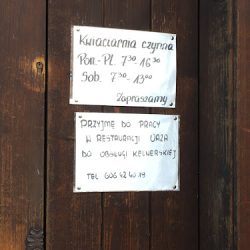 Kwiaciarnia czynna
Pon.-Pt. 7³⁰ 16³⁰
Sob. 7³⁰-13⁰⁰
Zapraszamy
PRZYJMĘ DO PRACY
W RESTAURACJI URZA
DO OBSŁUGI KELNERSKIEJ
TEL 606 42 40 19